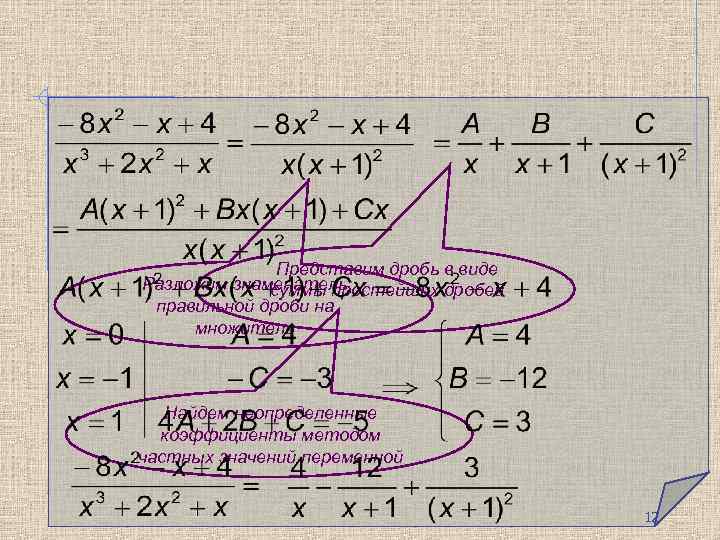 (−8x² − x + 4)/(x³ + 2x² + x) = (−8x² − x + 4)/(x(x + 1)²) = A/x + B/(x + 1) + C/(x + 1)²
= (A(x + 1)² + Bx(x + 1) + Cx)/(x(x + 1)²)
Представим дробь в виде
суммы простейших дробей
Разложим знаменатель
правильной дроби на
множители
A(x + 1)² + Bx(x + 1) + Cx = −8x² − x + 4
x = 0 | A = 4
x = −1 | −C = −3
x = 1 | 4A + 2B + C = −5
⇒ { A = 4
B = −12
C = 3
Найдем неопределенные
коэффициенты методом
частных значений переменной
(−8x² − x + 4)/(x³ + 2x² + x) = 4/x − 12/(x + 1) + 3/(x + 1)²
12